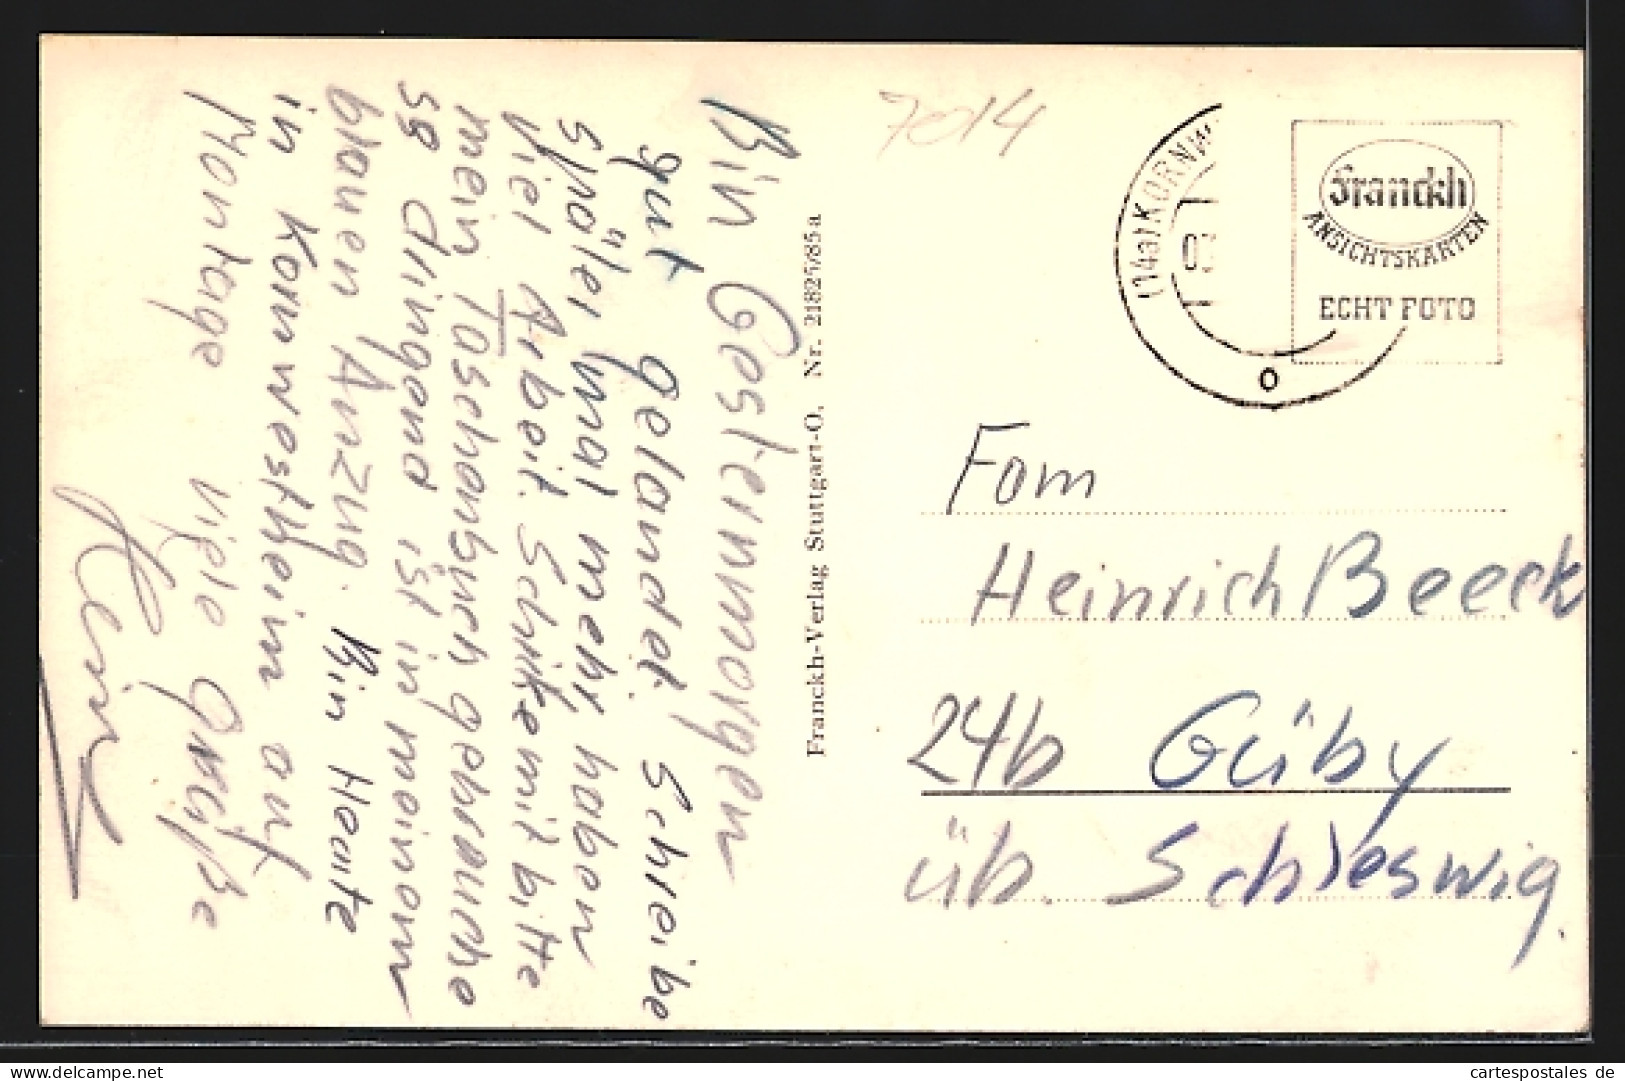 Bin Gestermorgen
gut gelandet. Schreibe
später mal mehr haben
viel Arbeit. Schike mit bitte
mein Taschenbuch gebrauche
es dringend ist in meinem
blauen Anzug. Bin Heute
in Kornwestheim auf
Montage
viele Grüße
Franckh-Verlag Stuttgart-O. Nr. 21825/85a
7014
(14a) KORNW
Franckh
ANSICHTSKARTEN
ECHT FOTO
Fam
Heinrich Beeck
24b Güby
üb. Schleswig.
cartespostales de
delcampe.net